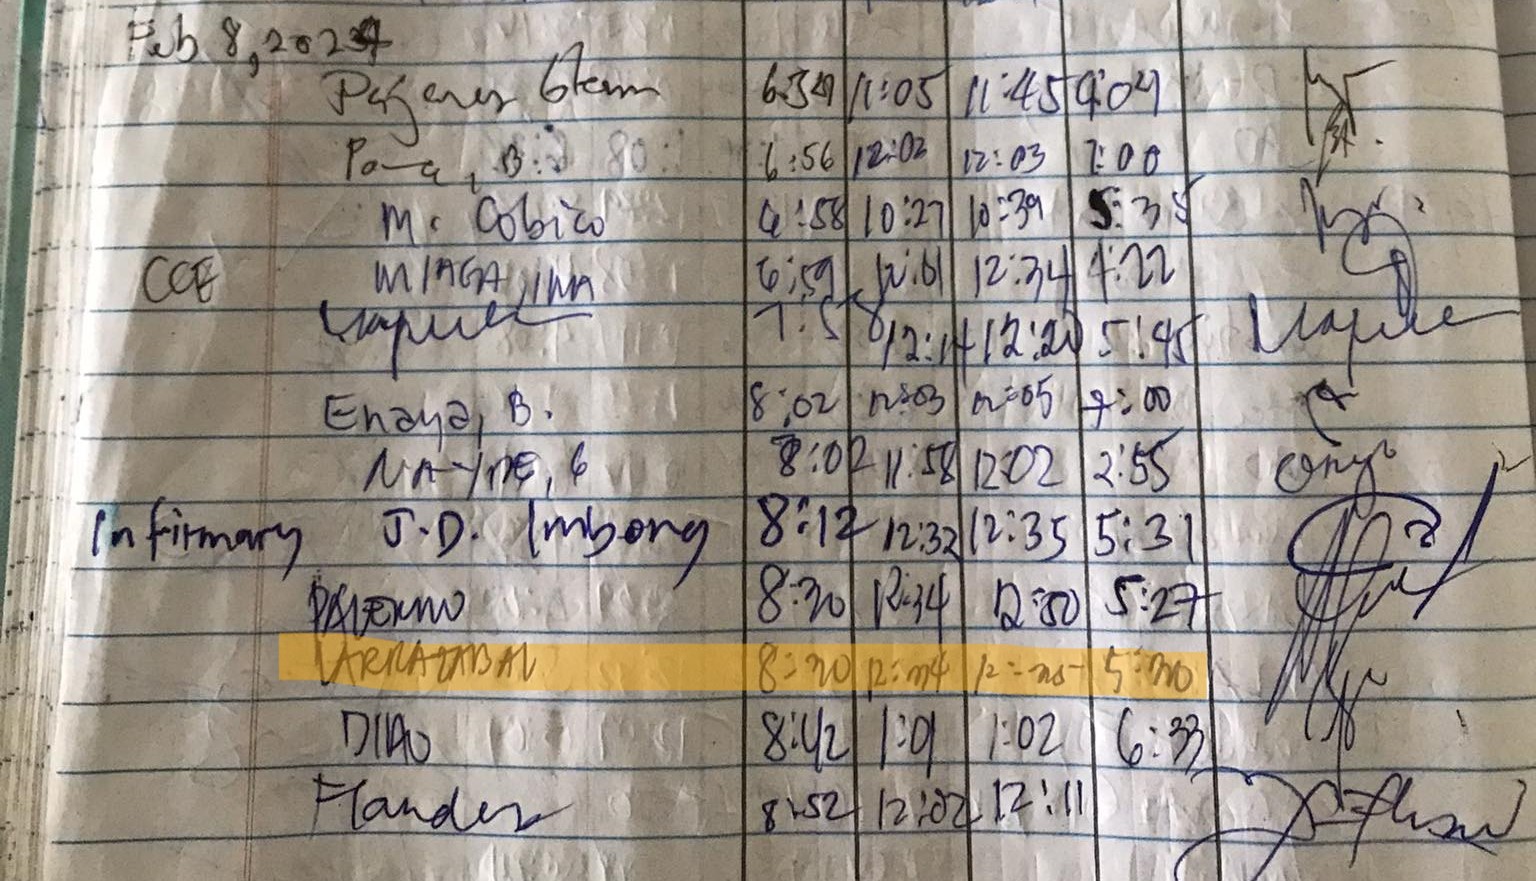 Feb 8, 2024
6:54 11:05 11:45 4:04
6:56 12:02 12:03 7:00
M. Cobico 6:58 10:27 10:39 5:35
COE MIAGA, INA 6:59 12:01 12:34 4:22
7:58 12:14 12:20 5:45
Enaya, B. 8:02 12:03 12:05 7:00
8:02 11:58 12:02 2:55
Infirmary J.D. Imbong 8:12 12:32 12:35 5:31
PALERMO 8:30 12:34 12:50 5:27
LARRAZABAL 8:30 12:34 12:35 5:30
DIAO 8:42 1:01 1:02 6:33
Flandez 8:52 12:02 12:11